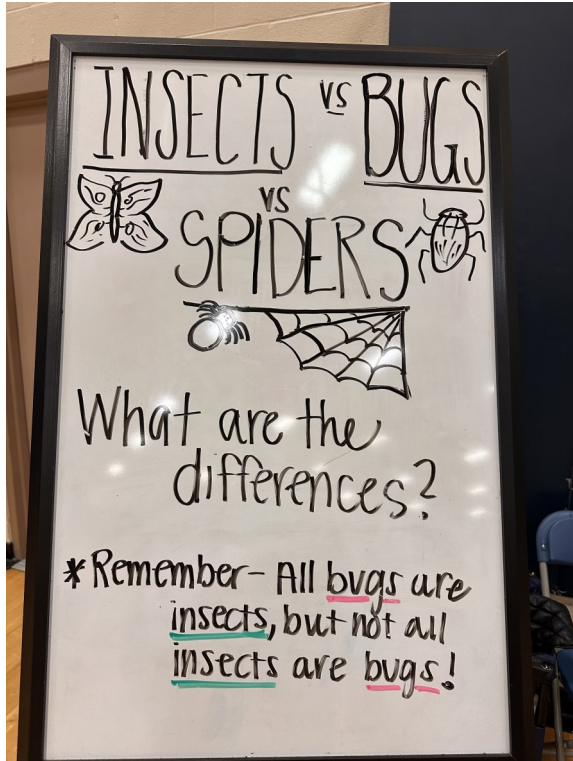 INSECTS vs BUGS
VS
SPIDERS
What are the
differences?
*Remember- All bugs are
insects, but not all
insects are bugs!